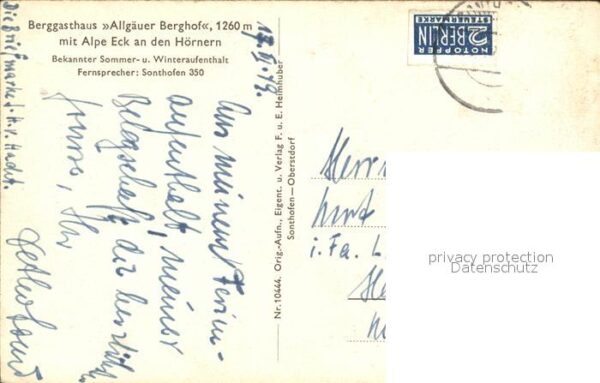 Berggasthaus »Allgäuer Berghof«, 1260 m
mit Alpe Eck an den Hörnern
Bekannter Sommer- u. Winteraufenthalt
Fernsprecher: Sonthofen 350
Die Briefmarke f. H. v.
Aus meinem Ferien-
aufenthalt, meiner
Belegschaft die herzlichsten
Ihr
Nr. 10444. Orig.-Aufn., Eigent. u. Verlag F. u. E. Heimhuber
Sonthofen—Oberstdorf
NOTOPFER
2 BERLIN
STEUERMARKE
Herrn
i. Fa. L.
privacy protection
Datenschutz